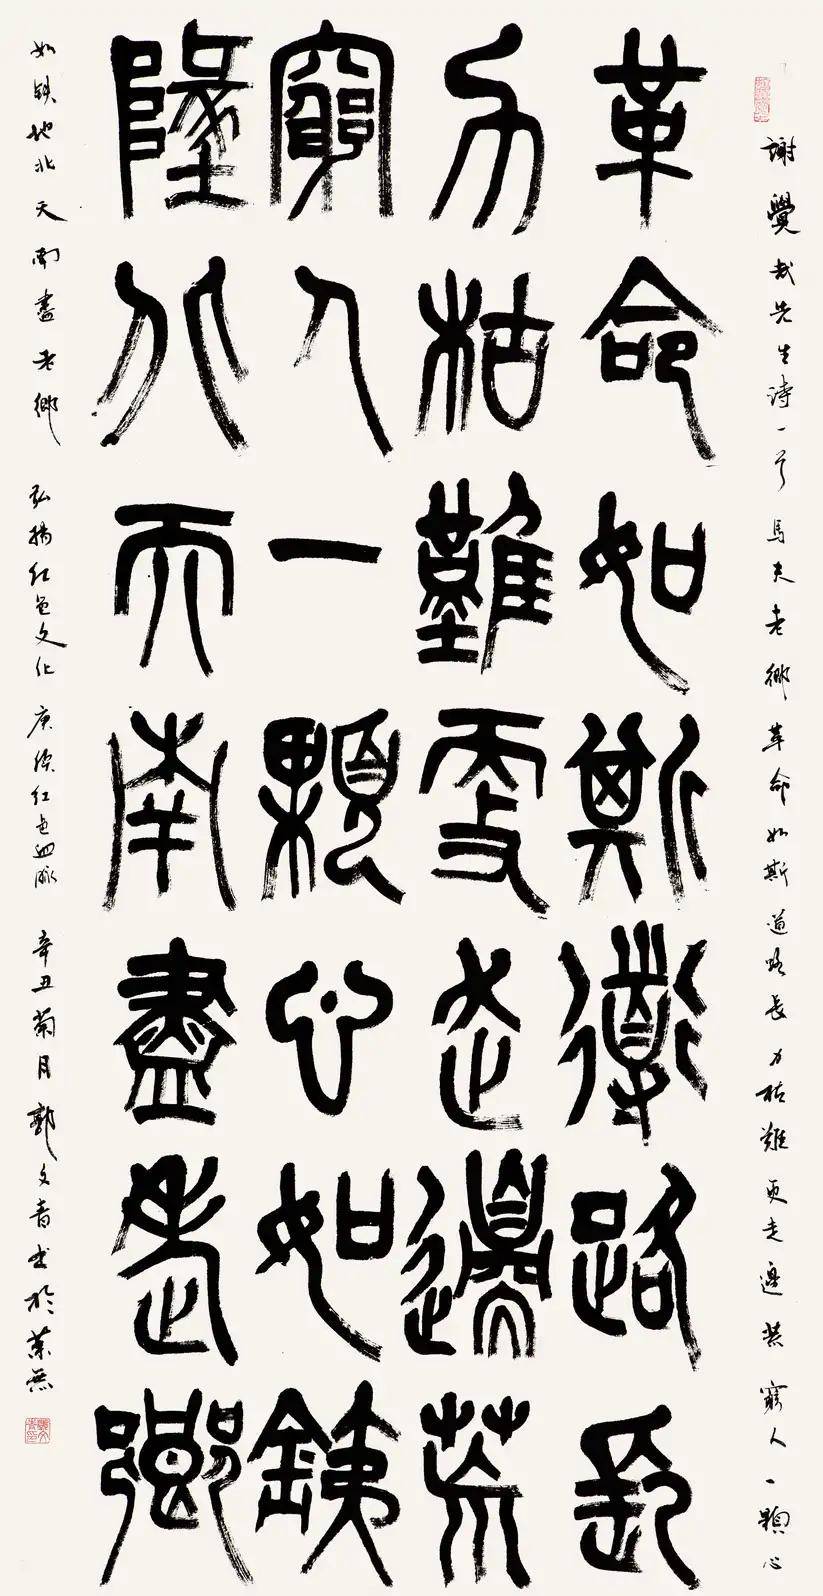 謝覺哉先生诗一首 馬夫老鄉 革命如斯道路長 力枯難更走邊荒 窮人一顆心
革命如斯道路長
力枯難更走邊荒
窮人一顆心如鐵
墬北天南盡老鄉
如鐵地北天南盡老鄉 弘揚紅色文化 庚續紅色血脈 辛丑菊月郭文青書於萊蕪